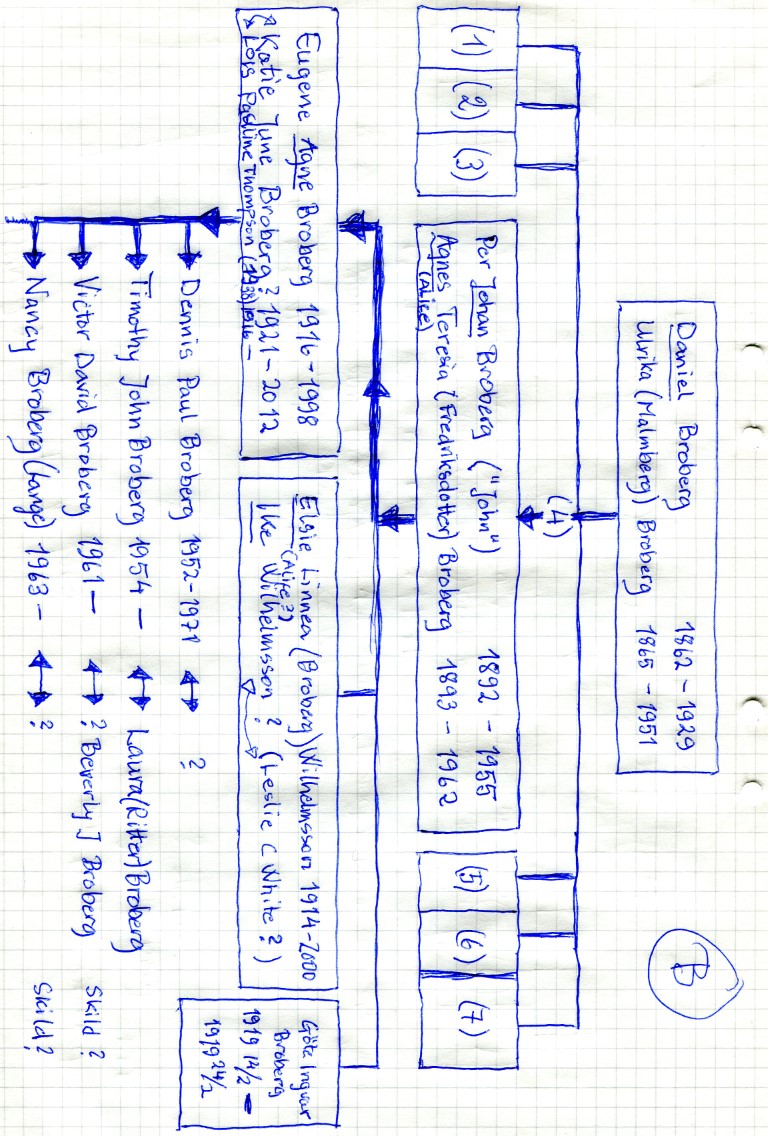 B
Daniel Broberg 1862 - 1929
Ulrika (Malmberg) Broberg 1865 - 1951
(1) (2) (3)
(4)
(5) (6) (7)
Per Johan Broberg ("John") 1892 - 1955
Agnes Teresia (Fredriksdotter) Broberg 1893 - 1962
(Alice)
Eugene Agne Broberg 1916 - 1998
Katie June Broberg? 1921 - 2012
Lois Pauline Thompson
Elsie Linnea (Broberg) Wilhelmsson 1914-2000
(Alice?)
Ike Wilhelmsson ? (Leslie C White?)
Göte Ingvar
Broberg
1919 14/2 -
1919 24/2
Dennis Paul Broberg 1952-1971 ?
Timothy John Broberg 1954 - Laura (Ritter) Broberg
Victor David Broberg 1961 - ? Beverly J Broberg Skild?
Nancy Broberg (Lange) 1963 - ? Skild?